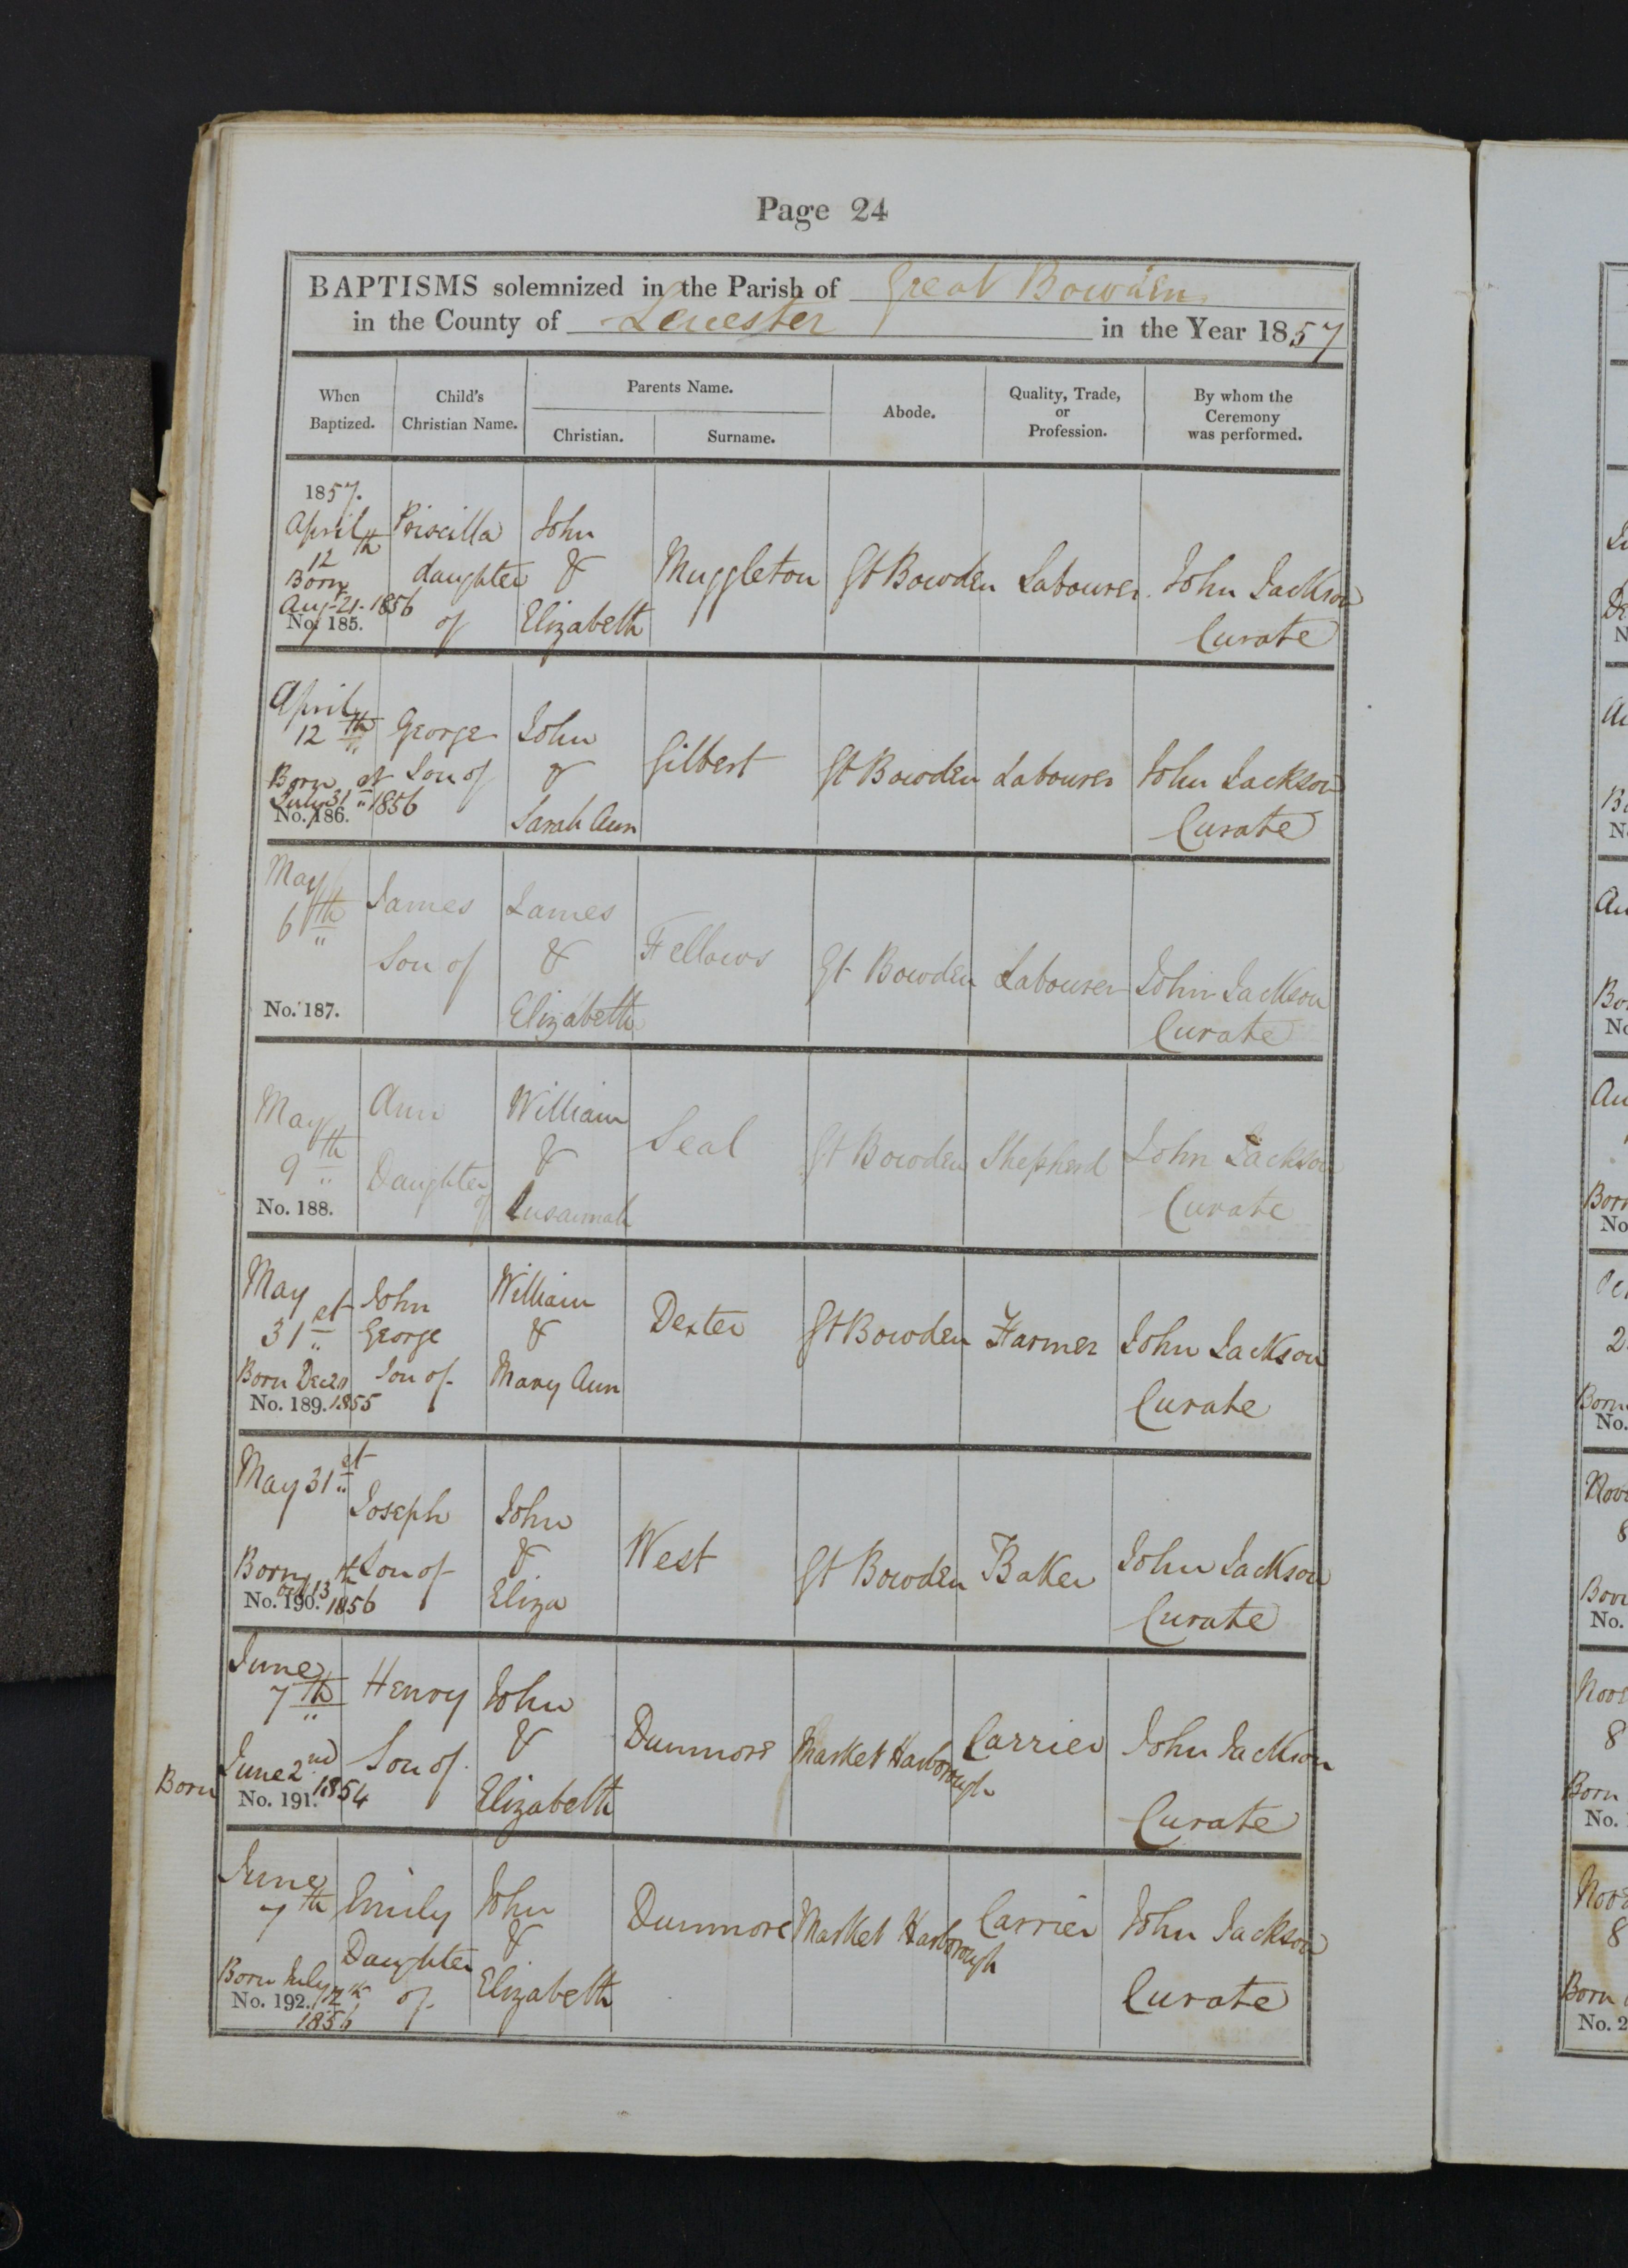 Page 24
BAPTISMS solemnized in the Parish of Great Bowden
in the County of Leicester in the Year 1857
When Baptized.
Child's Christian Name.
Parents Name.
Christian.
Surname.
Abode.
Quality, Trade, or Profession.
By whom the Ceremony was performed.
1857.
April
12th
Born
Augt 21. 1856
No. 185.
Priscilla
daughter
of
John
&
Elizabeth
Muggleton
Gt Bowden
Labourer.
John Jackson
Curate
April
12th
Born
July 31st 1856
No. 186.
George
Son of
John
&
Sarah Ann
Gilbert
Gt Bowden
Labourer
John Jackson
Curate
May
6th
No. 187.
James
Son of
James
&
Elizabeth
Fellows
Gt Bowden
Labourer
John Jackson
Curate
May
9th
No. 188.
Ann
Daughter
of
William
&
Susannah
Seal
Gt Bowden
Shepherd
John Jackson
Curate
May
31st
Born Dec
No. 189. 1855
John
George
Son of
William
&
Mary Ann
Dexter
Gt Bowden
Farmer
John Jackson
Curate
May 31st
Born
Oct 13th
No. 190. 1856
Joseph
Son of
John
&
Eliza
West
Gt Bowden
Baker
John Jackson
Curate
June
7th
Born June 2nd
No. 191. 1854
Henry
Son of
John
&
Elizabeth
Dunmore
Market Harborough
Carrier
John Jackson
Curate
June
7th
Born July
No. 192. 12th
1856
Emily
Daughter
of
John
&
Elizabeth
Dunmore
Market Harborough
Carrier
John Jackson
Curate